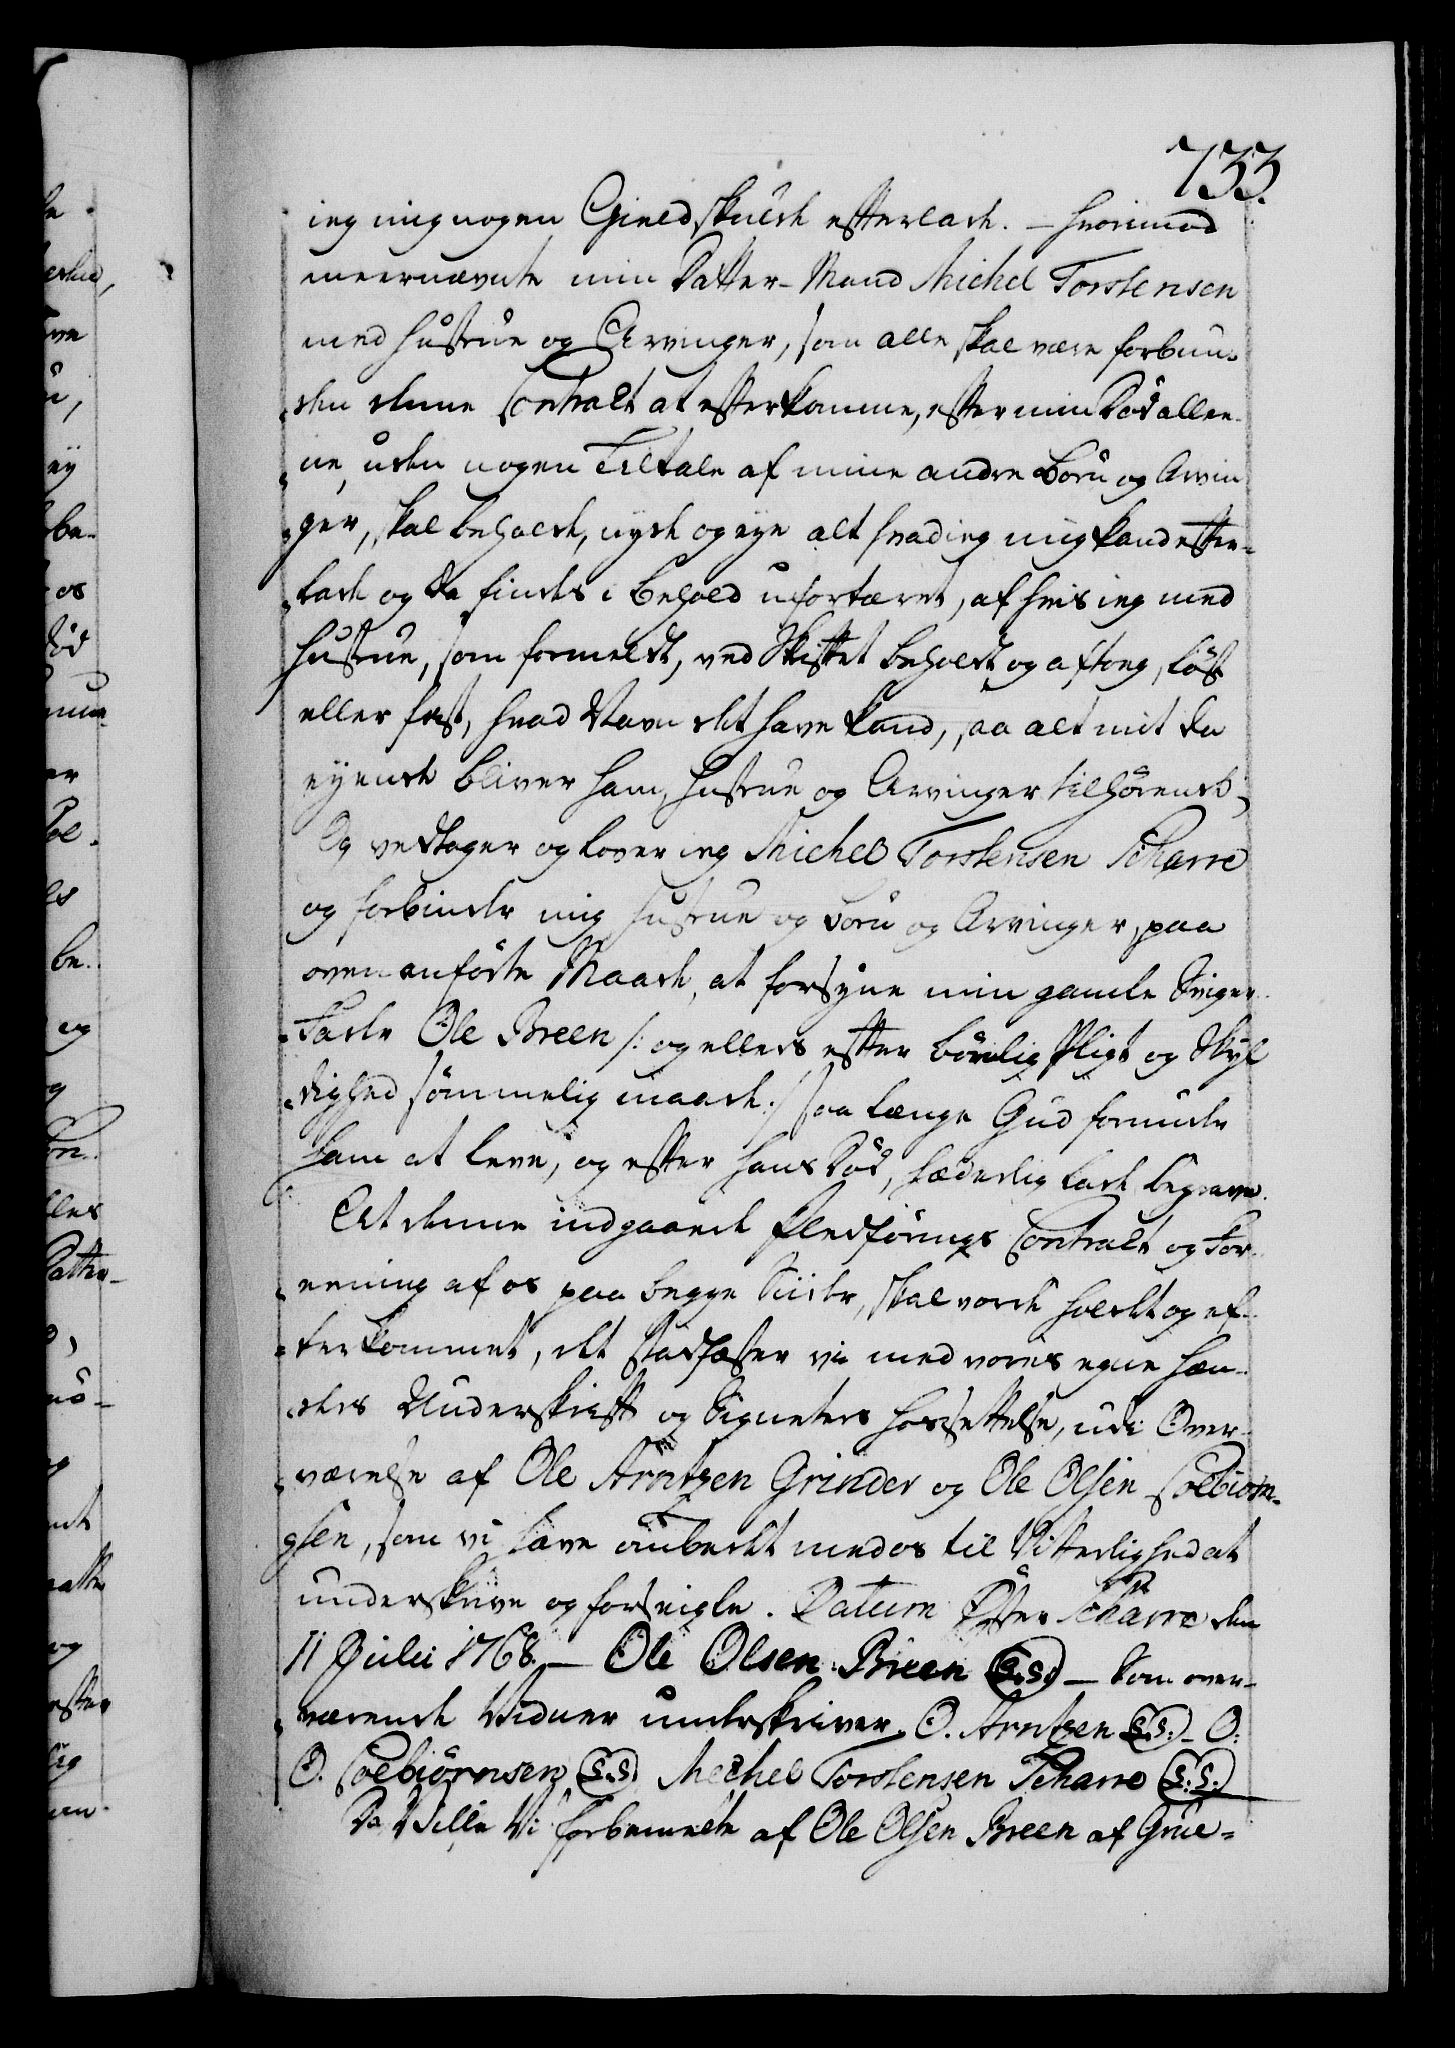 733.
ieg mig nogen Gieldskuld efterlade. – hvorimod
meernævnte min Datter-Mand Michel Torstensen
med Hustrue og Arvinger, som alle skal være forbun-
den denne Contract at efterkomme, efter min Död allee-
ne, uden nogen Tiltale af mine andre Börn og Arvin
ger, skal beholde, nyde og eye alt hvad ieg mig kand efter-
lade og da findes i behold ufortæret, af hvis ieg med
Hustrue, som formeldt, ved Skiftet beholdt og aftoeg, löst
eller fast, hvad Navn det have kand, saa alt mit da
eyende bliver ham, Hustrue og Arvinger tilhörende,
Og vedtager og lover ieg Michel Torstensen Scharre
og forbinder mig Hustrue og Börn og Arvinger, paa
ovenanförte Maade, at forsyne min gamle Sviger-
Fader Ole Breen /: og ellers efter börnlig Pligt og Skyl
dighed sömmelig maade :/ saa længe Gud forunder
ham at leve, og efter hans Död, hæderlig lade begrave.
At denne indgaaede Fledförings Contract og For-
eening af os paa begge Siider, skal vorde holdt og ef-
terkommet, det stadfæster vi med vores egne Hæn-
ders Underskrift og Signeters hossettelse, udi Over-
værelse af Ole Arntzen Grinder og Ole Olsen Colbiörn-
sen, som vi have ombedet med os til Vitterlighed at
underskrive og forseigle. Datum Öster Scharre den
11 Julii 1768. – Ole Olsen Breen (L.S.) – Som over-
værende Vidner underskriver O. Arntzen (L.S.) – O:
O. Colbiörnsen (L.S.) Mechel Torstensen Scharre (L.S.)
Da Ville Vi forbemeldte af Ole Olsen Breen af Grue-